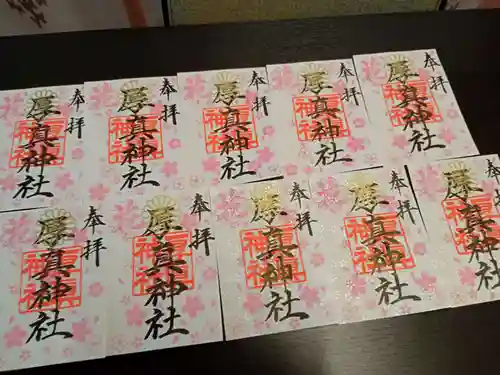 奉拝
厚真神社
花
奉拝
厚真神社
花
奉拝
厚真神社
花
奉拝
厚真神社
花
奉拝
厚真神社
花
奉拝
厚真神社
花
奉拝
厚真神社
花
奉拝
厚真神社
花
奉拝
厚真神社
花
奉拝
厚真神社
花